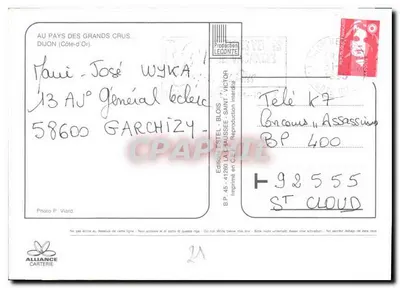 AU PAYS DES GRANDS CRUS
DIJON (Côte-d'Or)
Marie-José WYKA
13 AV Général Leclerc
58600 GARCHIZY
Photo P. Viard
ALLIANCE
CARTERIE
Production
LECONTE
Editions ESTEL - BLOIS
B.P. 45 - 41260 LA CHAUSSÉE-SAINT-VICTOR
Imprimé en C.E.E. Reproduction Interdite
Télé K7
Concours "Assassins
BP 400
92555
ST CLOUD
21
CPARAMA